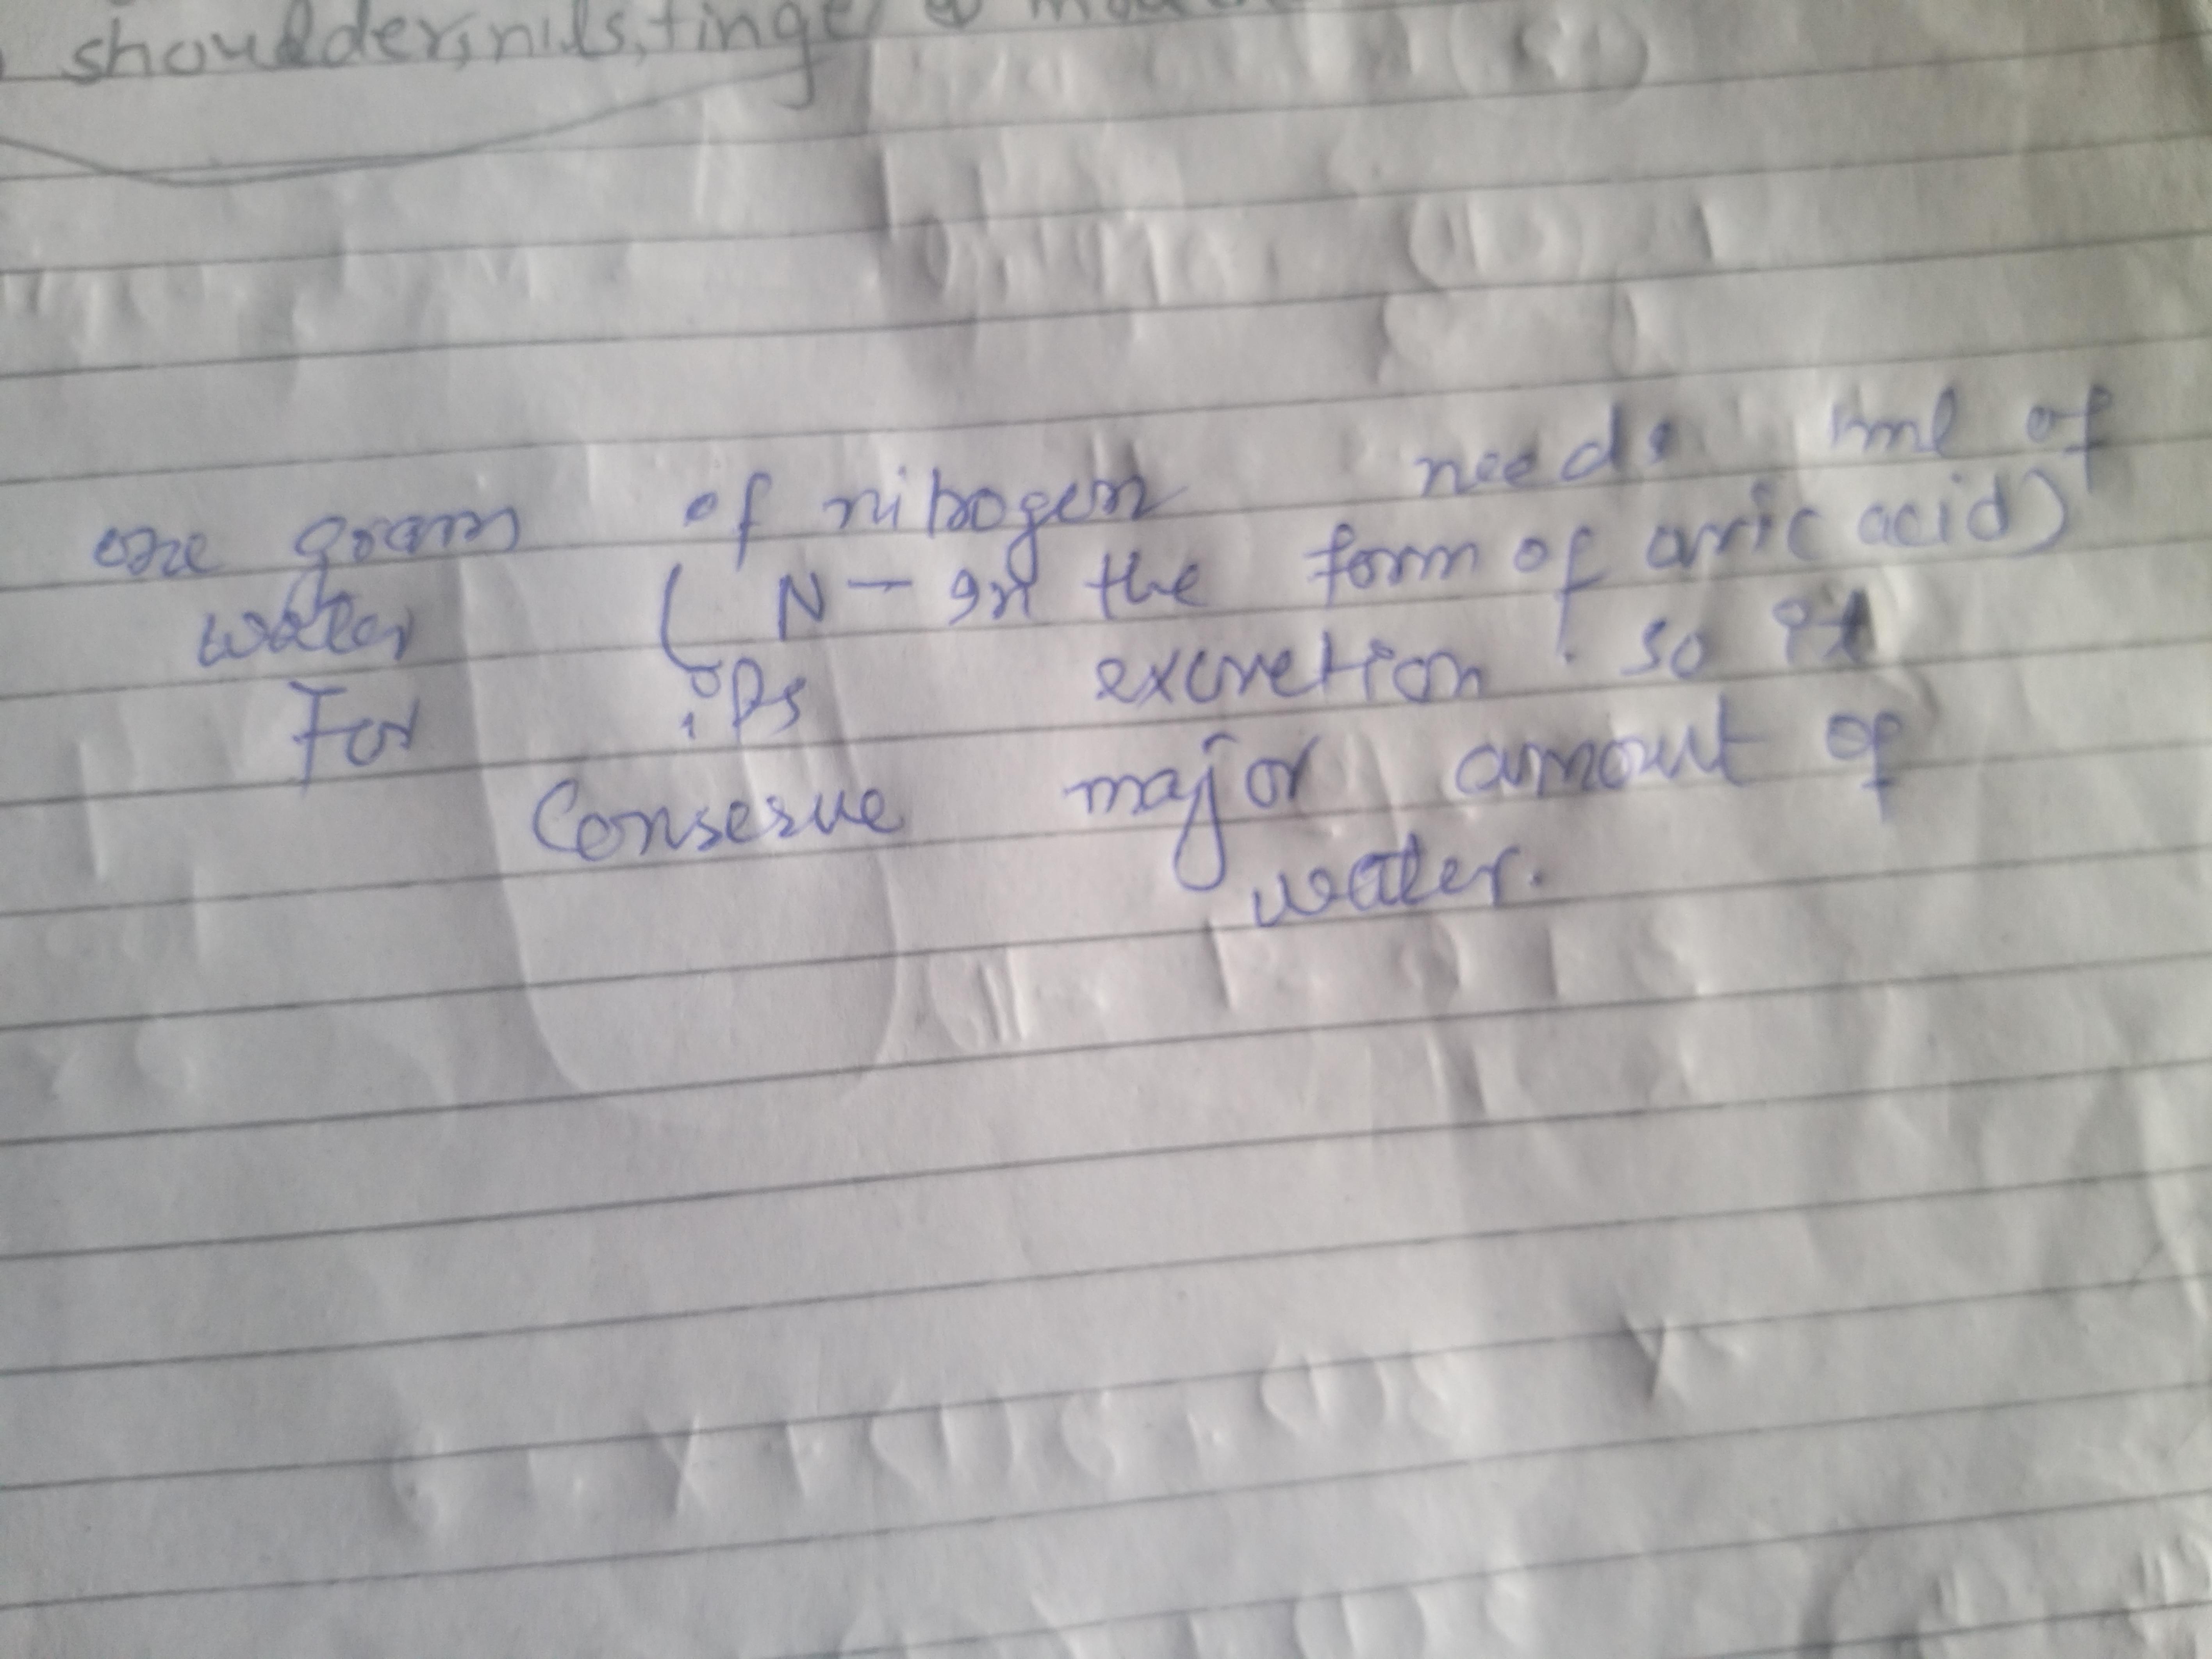 shoulder, nils, tinge
one gram of nitrogen needs 1ml of
water (N - In the form of uric acid)
For its excretion. so it
Conserve major amount of
water.